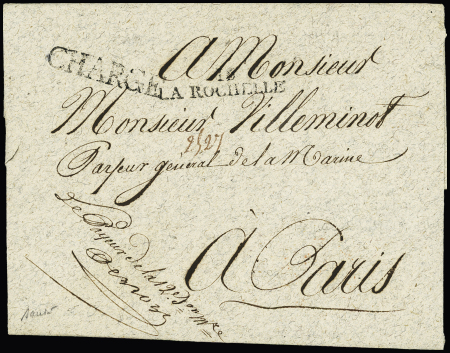 A Monsieur
CHARGÉ
LA ROCHELLE
Monsieur Villeminot
2527
Payeur général de la Marine
Le Payeur de la 12e Don Mre
à Paris